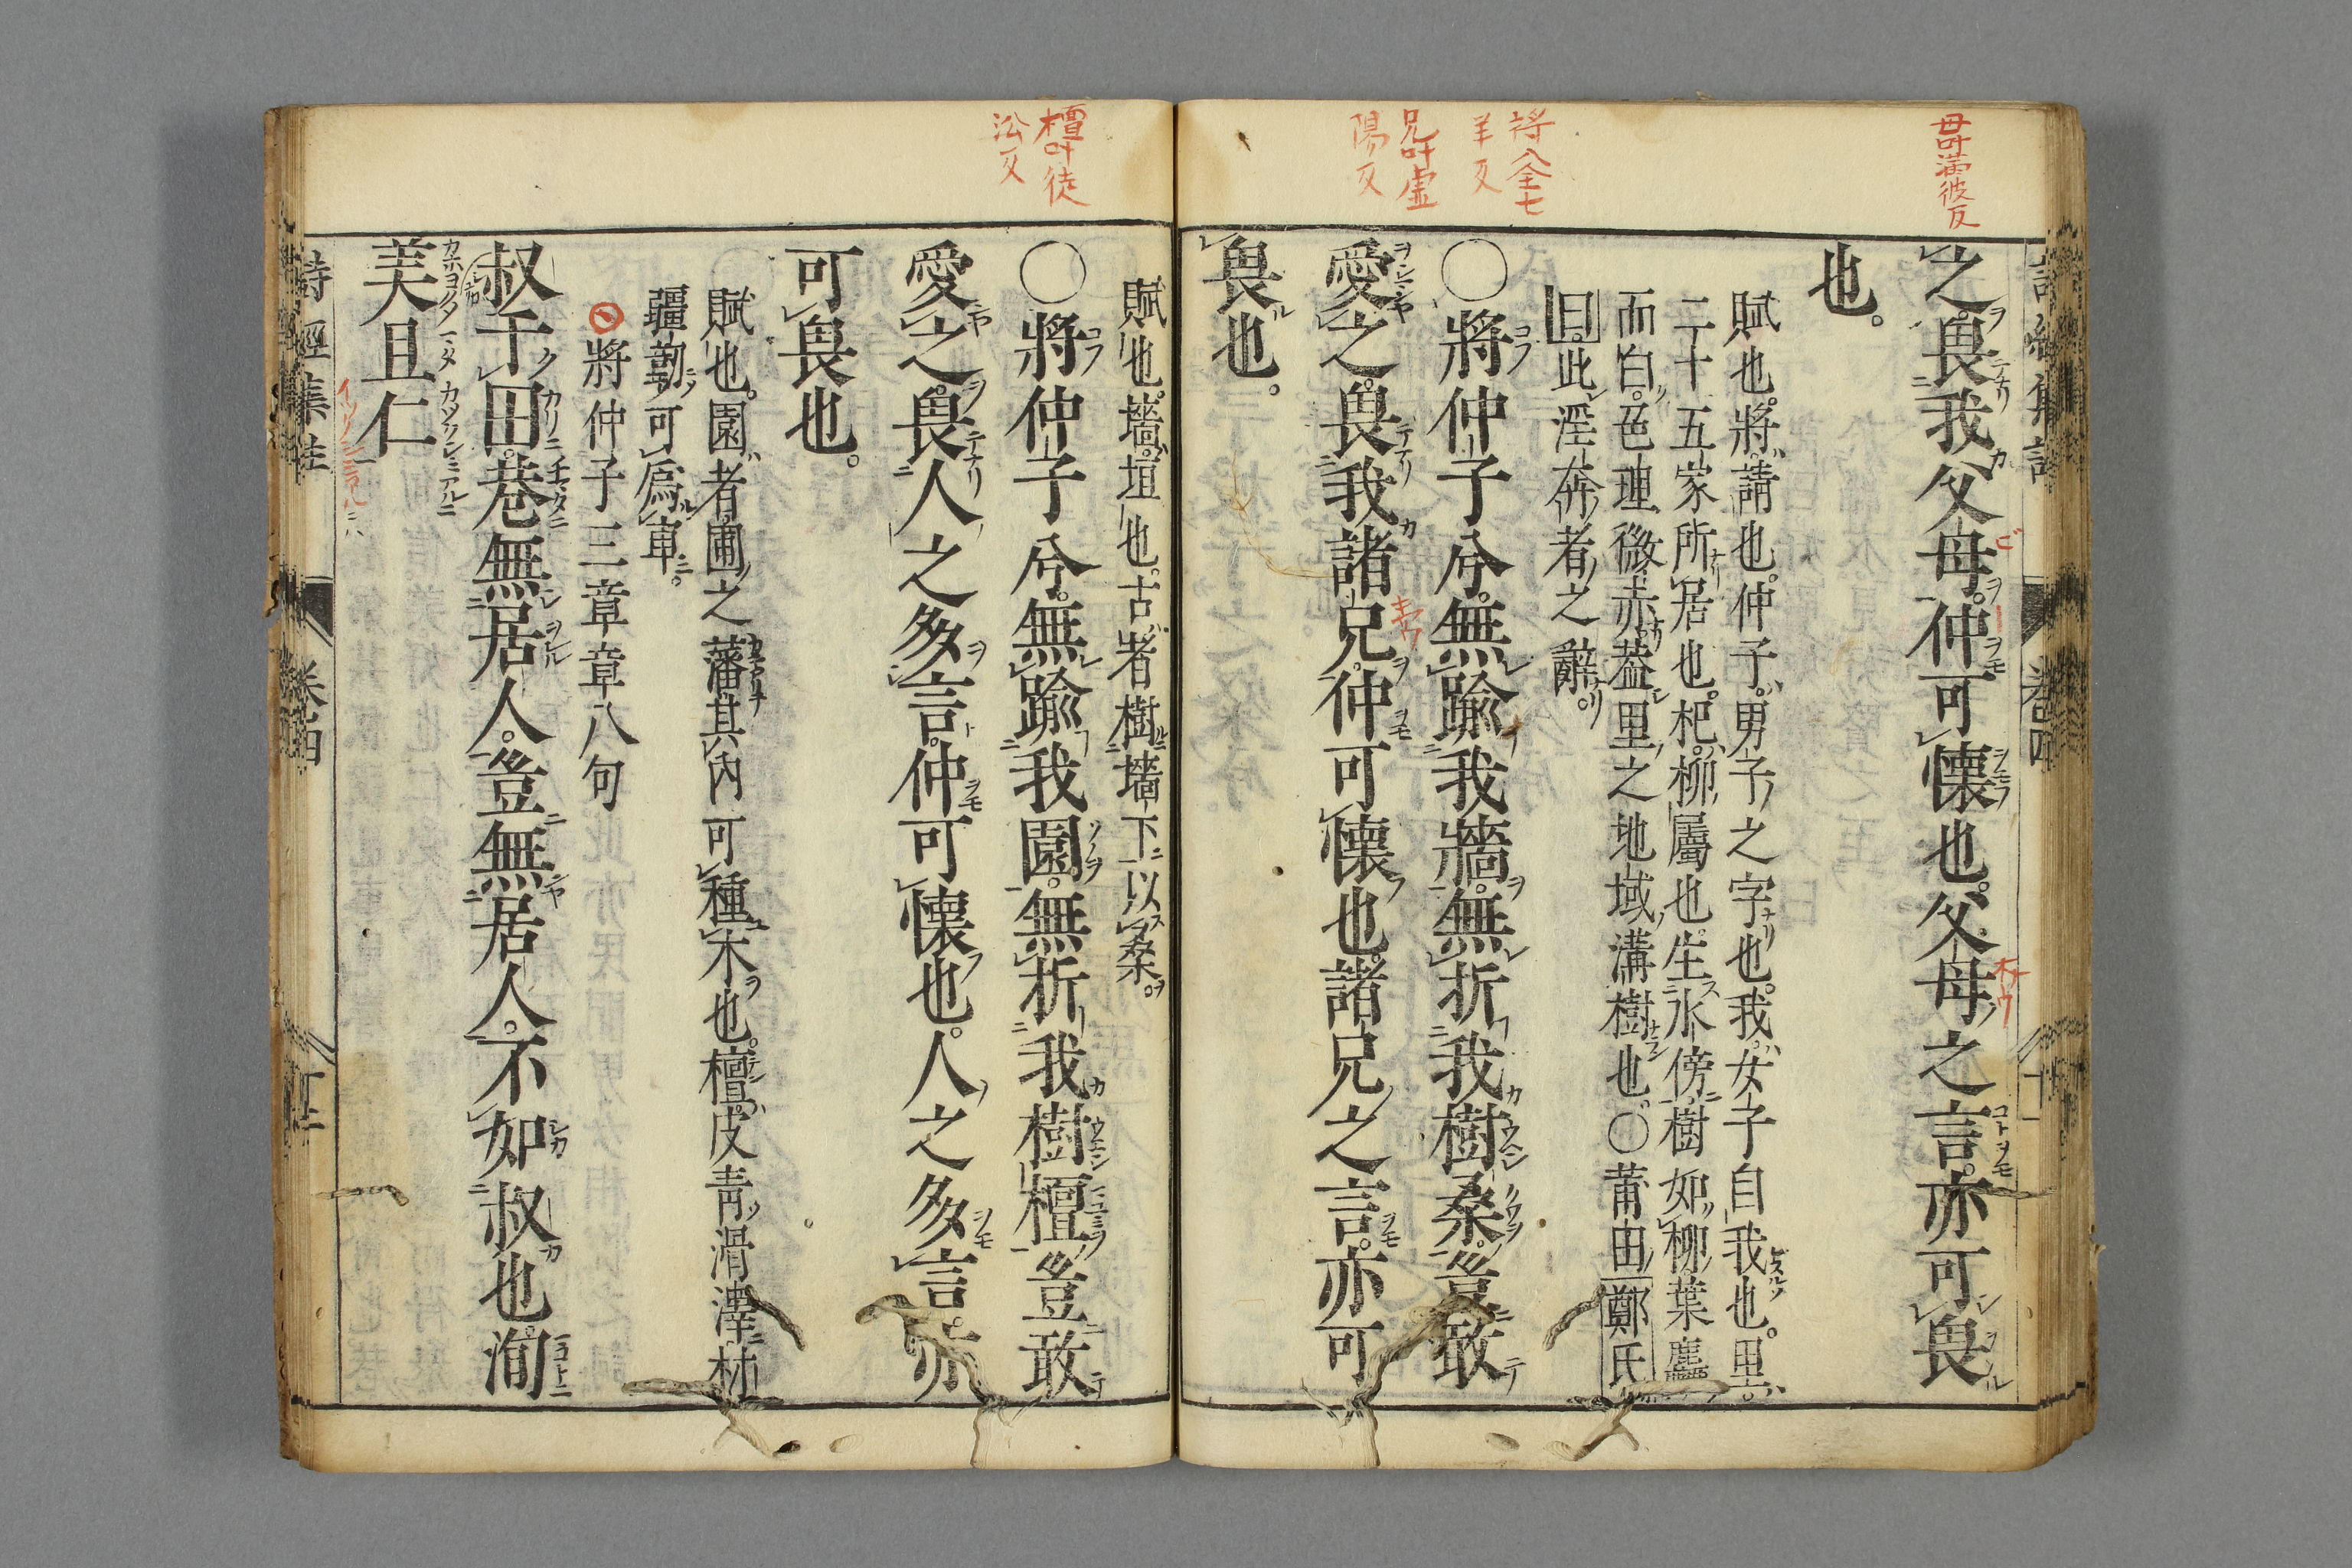 母叶滿彼反
之畏我父母仲可懷也父母之言亦可畏
也
賦也將請也仲子男子之字也我女子自我也里
二十五家所居也杞柳屬也生水傍樹如柳葉麤
而白色理微赤蓋里之地域溝樹也〇莆田鄭氏
曰此淫奔者之辭
將仝七
羊反
〇將仲子兮無踰我牆無折我樹桑豈敢
兄叶虛
陽反
愛之畏我諸兄仲可懷也諸兄之言亦可
畏也
賦也墻垣也古者樹墻下以桑
檀叶徒
㳂反
〇將仲子兮無踰我園無折我樹檀豈敢
愛之畏人之多言仲可懷也人之多言亦
可畏也
賦也園者圃之藩其內可種木也檀皮青滑澤材
彊韌可爲車
將仲子三章章八句
叔于田巷無居人豈無居人不如叔也洵
美且仁
詩經集註
卷四